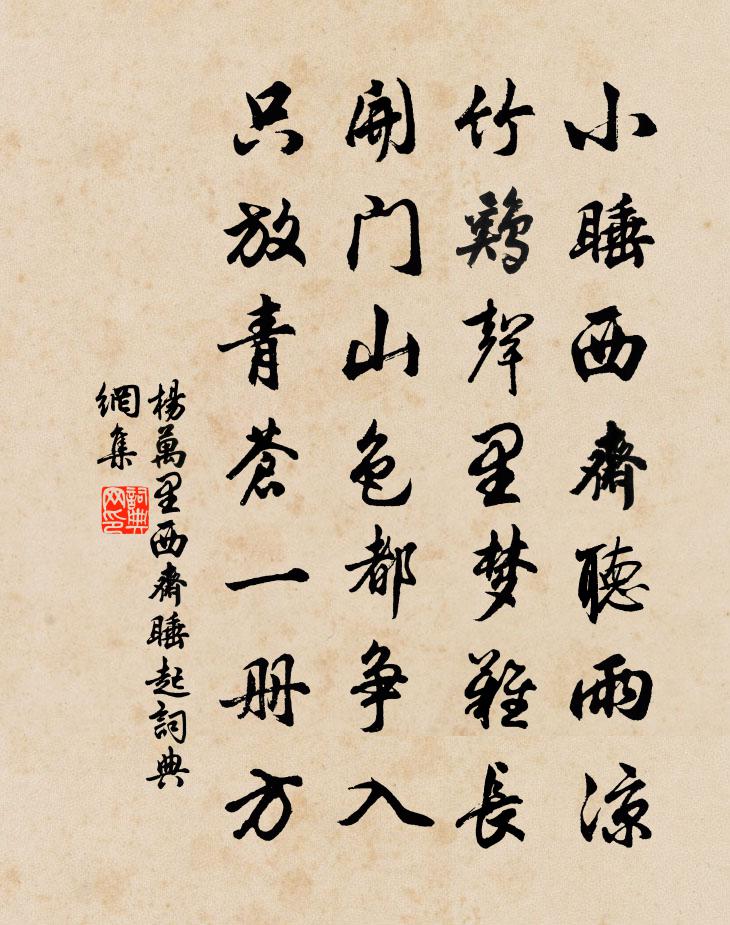 小睡西齋聽雨涼
竹鷄聲里梦難長
開门山色都争入
只放青蒼一册方
楊萬里西齋睡起詞典
網集
詞典网印